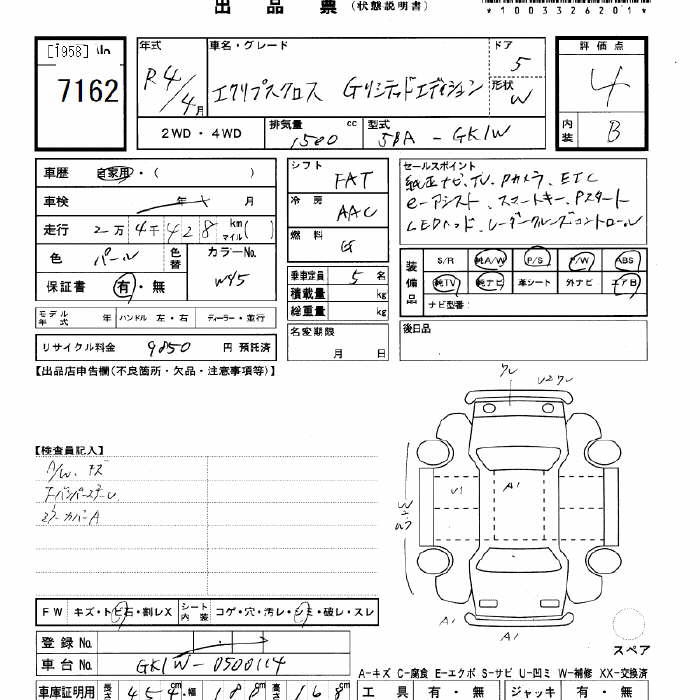 出品票(状態説明書)
*1003326201*
[1958]
7162
年式
R4/4月
車名・グレード
エクリプスクロス Gリミテッドエディション
ドア
5
形状
W
評価点
4
内装
B
2WD・4WD
排気量 1500 cc
型式 5BA-GK1W
車歴 自家用・( )
車検 年 月
走行 2万4千428km(マイル)( )
色 パール 色替
カラーNo. W45
保証書 有・無
モデル年式 年 ハンドル 左・右 ディーラー・並行
リサイクル料金 9850 円 預託済
シフト FAT
冷房 AAC
燃料 G
乗車定員 5名
積載量 kg
総重量 kg
名変期限
月 日
セールスポイント
純正ナビ、TV、Pカメラ、ETC
e-アシスト、スマートキー、Pスタート
LEDヘッド、レーダークルーズコントロール
装備品
S/R 純A/W P/S P/W ABS
純TV 純ナビ 革シート 外ナビ エアB
ナビ型番:
後日品
【出品店申告欄(不良箇所・欠品・注意事項等)】
【検査員記入】
A/W、キズ
ミラーカバーA
U2
U1
A1
A1
A1
FW キズ・トビ石・割レX
シート内装 コゲ・穴・汚レ・シミ・破レ・スレ
登録No.
車台No. GK1W-0500114
スペア
A-キズ C-腐食 E-エクボ S-サビ U-凹ミ W-補修 XX-交換済
車庫証明用 長さ 454cm 幅 180cm 高さ 168cm
工具 有・無 ジャッキ 有・無